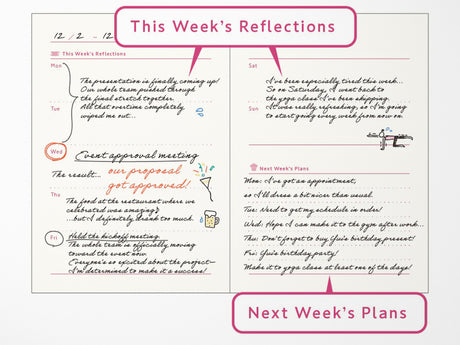 This Week's Reflections
12 / 2 - 12
This Week's Reflections
Mon
The presentation is finally coming up!
Our whole team pushed through
the final stretch together.
Tue
All that overtime completely
wiped me out...
Wed
Event approval meeting
The result... our proposal
got approved!
Thu
The food at the restaurant where we
celebrated was amazing♪
...but I definitely drank too much.
Fri
Held the kickoff meeting.
The whole team is officially moving
toward the event now.
Everyone's so excited about the project—
I'm determined to make it a success!
Sat
I've been especially tired this week...
So on Saturday, I went back to
the yoga class I've been skipping.
Sun
It was really refreshing, so I'm going
to start going every week from now on.
Next Week's Plans
Mon: I've got an appointment,
so I'll dress a bit nicer than usual.
Tue: Need to get my schedule in order!
Wed: Hope I can make it to the gym after work...
Thu: Don't forget to buy Yui's birthday present!
Fri: Yui's birthday party!
Make it to yoga class at least one of the days!
Next Week's Plans